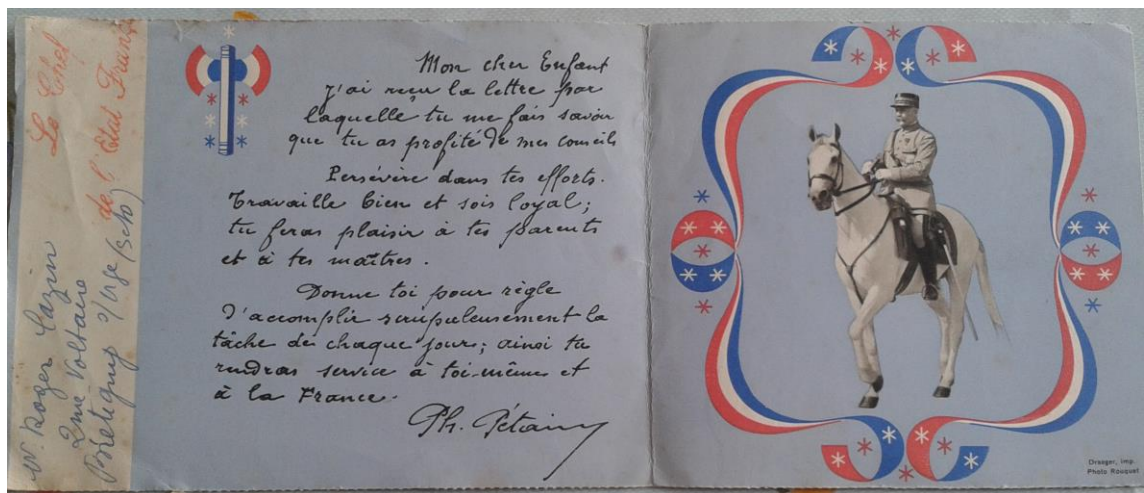 Le Chef
de l'État Français
M. Roger Cazin
Rue Voltaire
Brétigny s/Orge (S et O)
Mon cher Enfant
j'ai reçu la lettre par
laquelle tu me fais savoir
que tu as profité de mes conseils
Persévère dans tes efforts.
Travaille bien et sois loyal;
tu feras plaisir à tes parents
et à tes maîtres.
Donne toi pour règle
d'accomplir scrupuleusement la
tâche de chaque jour; ainsi tu
rendras service à toi-même et
à la France.
Ph. Pétain
Draeger, Imp.
Photo Rouquet